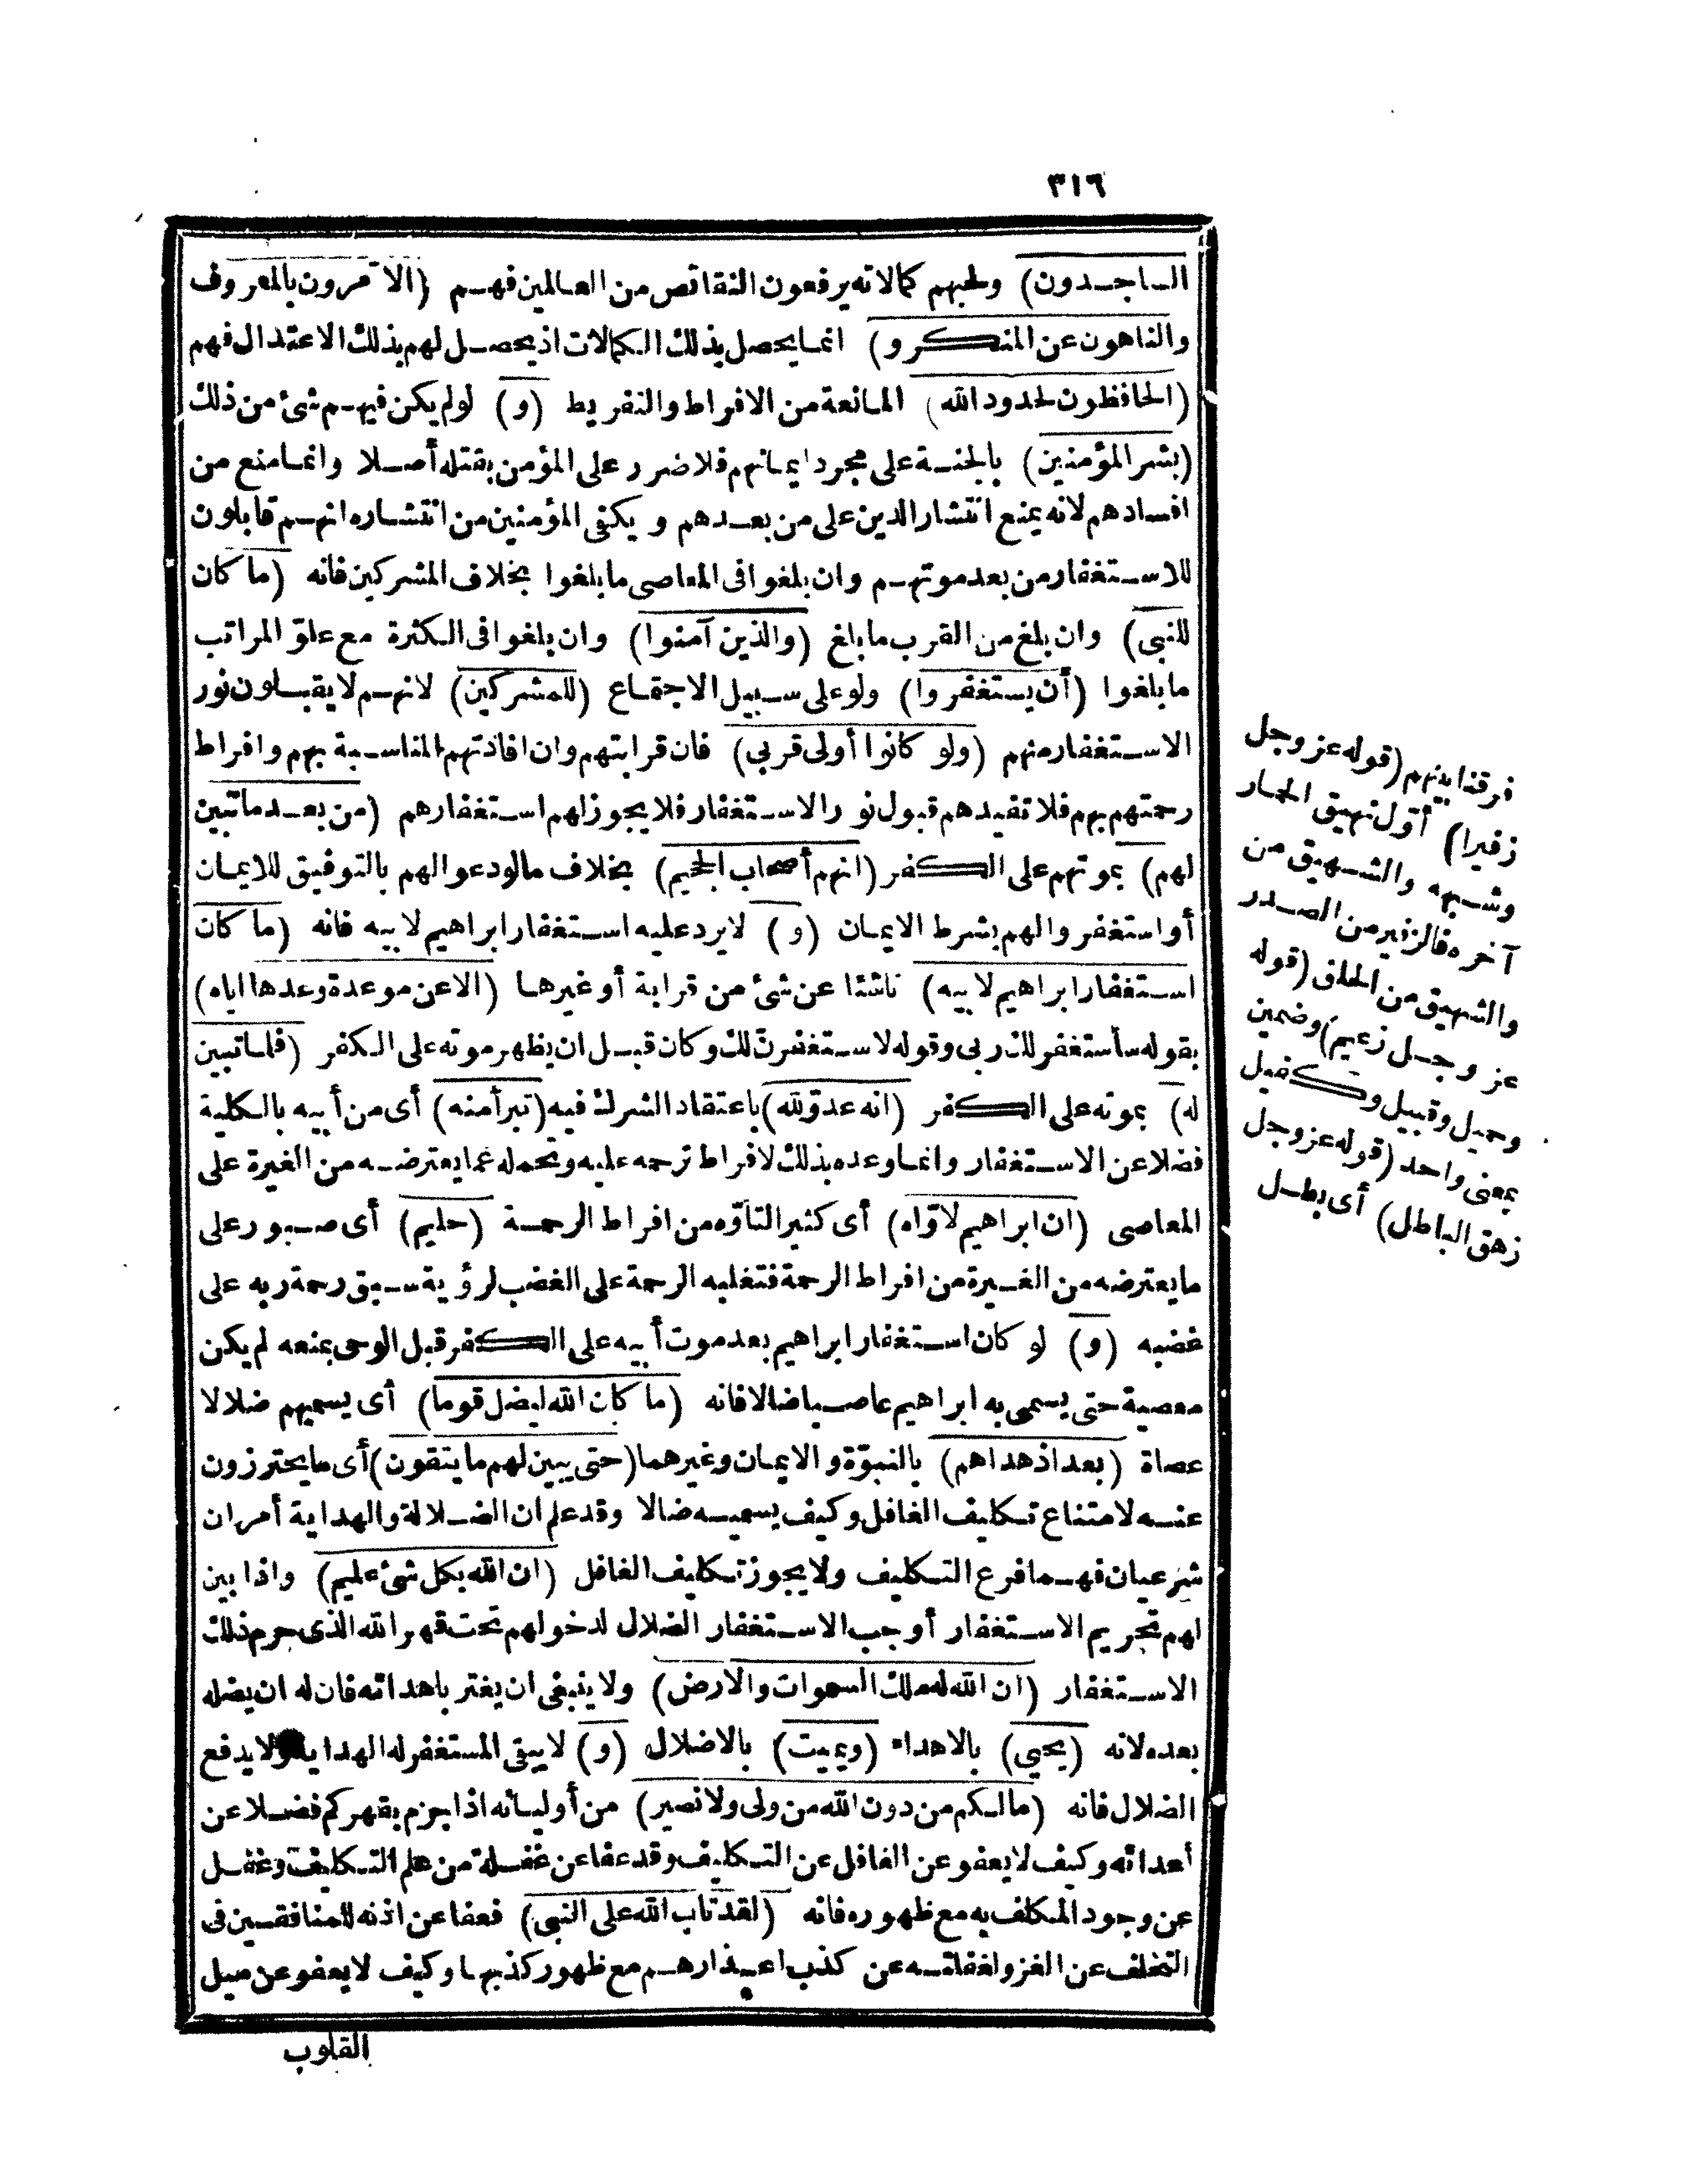 ٣١٦
الساجدون) ولحبهم كمالاته يرفعون النقائص من العالمين فهم (الآمرون بالمعروف
والناهون عن المنكر و) انما يحصل بذلك الكمالات اذ يحصل لهم بذلك الاعتدال فهم
(الحافظون لحدود الله) المانعة من الافراط والتفريط (و) لو لم يكن فيهم شئ من ذلك
(بشر المؤمنين) بالجنة على مجرد ايمانهم فلا ضرر على المؤمن بقتله أصلا وانما منع من
افسادهم لانه يمنع انتشار الدين على من بعدهم و يكفى المؤمنين من انتشاره انهم قابلون
للاستغفار من بعد موتهم وان بلغوا فى المعاصى ما بلغوا بخلاف المشركين فانه (ما كان
للنبى) وان بلغ من القرب ما بلغ (والذين آمنوا) وان بلغوا فى الكثرة مع علو المراتب
ما بلغوا (أن يستغفروا) ولو على سبيل الاجتماع (للمشركين) لانهم لا يقبلون نور
الاستغفار منهم (ولو كانوا أولى قربى) فان قرابتهم وان افادتهم المناسبة بهم وافراط
رحمتهم بهم فلا تفيدهم قبول نور الاستغفار فلا يجوز لهم استغفارهم (من بعد ما تبين
لهم) بموتهم على الكفر (انهم أصحاب الجحيم) بخلاف مالو دعوا لهم بالتوفيق للايمان
أو استغفروا لهم بشرط الايمان (و) لا يرد عليه استغفار ابراهيم لابيه فانه (ما كان
استغفار ابراهيم لابيه) ناشئا عن شئ من قرابة أو غيرها (الا عن موعدة وعدها اياه)
بقوله سأستغفر لك ربى وقوله لاستغفرن لك وكان قبل ان يظهر موته على الكفر (فلما تبين
له) بموته على الكفر (انه عدوّ لله) باعتقاد الشرك فيه (تبرأ منه) أى من أبيه بالكلية
فضلا عن الاستغفار وانما وعده بذلك لافراط ترحمه عليه وتحمله عما يعترضه من الغيرة على
المعاصى (ان ابراهيم لاوّاه) أى كثير التأوّه من افراط الرحمة (حليم) أى صبور على
ما يعترضه من الغيرة من افراط الرحمة فتغلبه الرحمة على الغضب لرؤية سبق رحمة ربه على
غضبه (و) لو كان استغفار ابراهيم بعد موت أبيه على الكفر قبل الوحى بمنعه لم يكن
معصية حتى يسمى به ابراهيم عاصيا ضالا فانه (ما كان الله ليضل قوما) أى يسميهم ضلالا
عصاة (بعد اذ هداهم) بالنبوّة والايمان وغيرهما (حتى يبين لهم ما يتقون) أى ما يحترزون
عنه لامتناع تكليف الغافل وكيف يسميه ضالا وقد علم ان الضلالة والهداية أمران
شرعيان فهما فرع التكليف ولا يجوز تكليف الغافل (ان الله بكل شئ عليم) واذا بين
لهم تحريم الاستغفار أوجب الاستغفار الضلال لدخولهم تحت قهر الله الذى حرم ذلك
الاستغفار (ان الله له ملك السموات والارض) ولا ينبغى ان يغتر باهدائه فان له ان يضله
بعده لانه (يحيى) بالاهداء (ويميت) بالاضلال (و) لا يبقى المستغفر له الهداية ولا يدفع
الضلال فانه (مالكم من دون الله من ولى ولا نصير) من أوليائه اذا جزم بقهركم فضلا عن
أعدائه وكيف لا يعفو عن الغافل عن التكليف وقد عفا عن غفلة من علم التكليف وغفل
عن وجود المكلف به مع ظهوره فانه (لقد تاب الله على النبى) فعفا عن اذنه للمنافقين فى
التخلف عن الغزو لغفلته عن كذب اعذارهم مع ظهور كذبها وكيف لا يعفو عن ميل
القلوب
فرقنا بينهم (قوله عز وجل
زفيرا) أوّل نهيق الحمار
وشبهه والشهيق من
آخره فالزفير من الصدر
والشهيق من الحلق (قوله
عز وجل زعيم) وضمين
وحميل وقبيل وكفيل
بمعنى واحد (قوله عز وجل
زهق الباطل) أى بطل